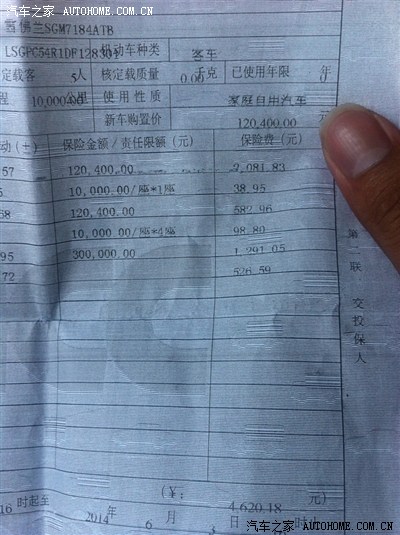 汽车之家 AUTOHOME.COM.CN
雪佛兰SGM7184ATB
LSGPC54R1DF128301 机动车种类 客车
定载客 5人 核定载质量 0.00 千克 已使用年限 年
程 10,000.00 公里 使用性质 家庭自用汽车
新车购置价 120,400.00 元
动(±) 保险金额/责任限额(元) 保险费(元)
57 120,400.00 2,081.83
5 10,000.00/座*1座 38.95
68 120,400.00 582.96
10,000.00/座*4座 98.80
95 300,000.00 1,291.05
72 526.59
第一联 交投保人
(¥: 4,620.18 元)
16 时起至 2014 年 6 月 3 日
汽车之家 AUTOHOME.COM.CN